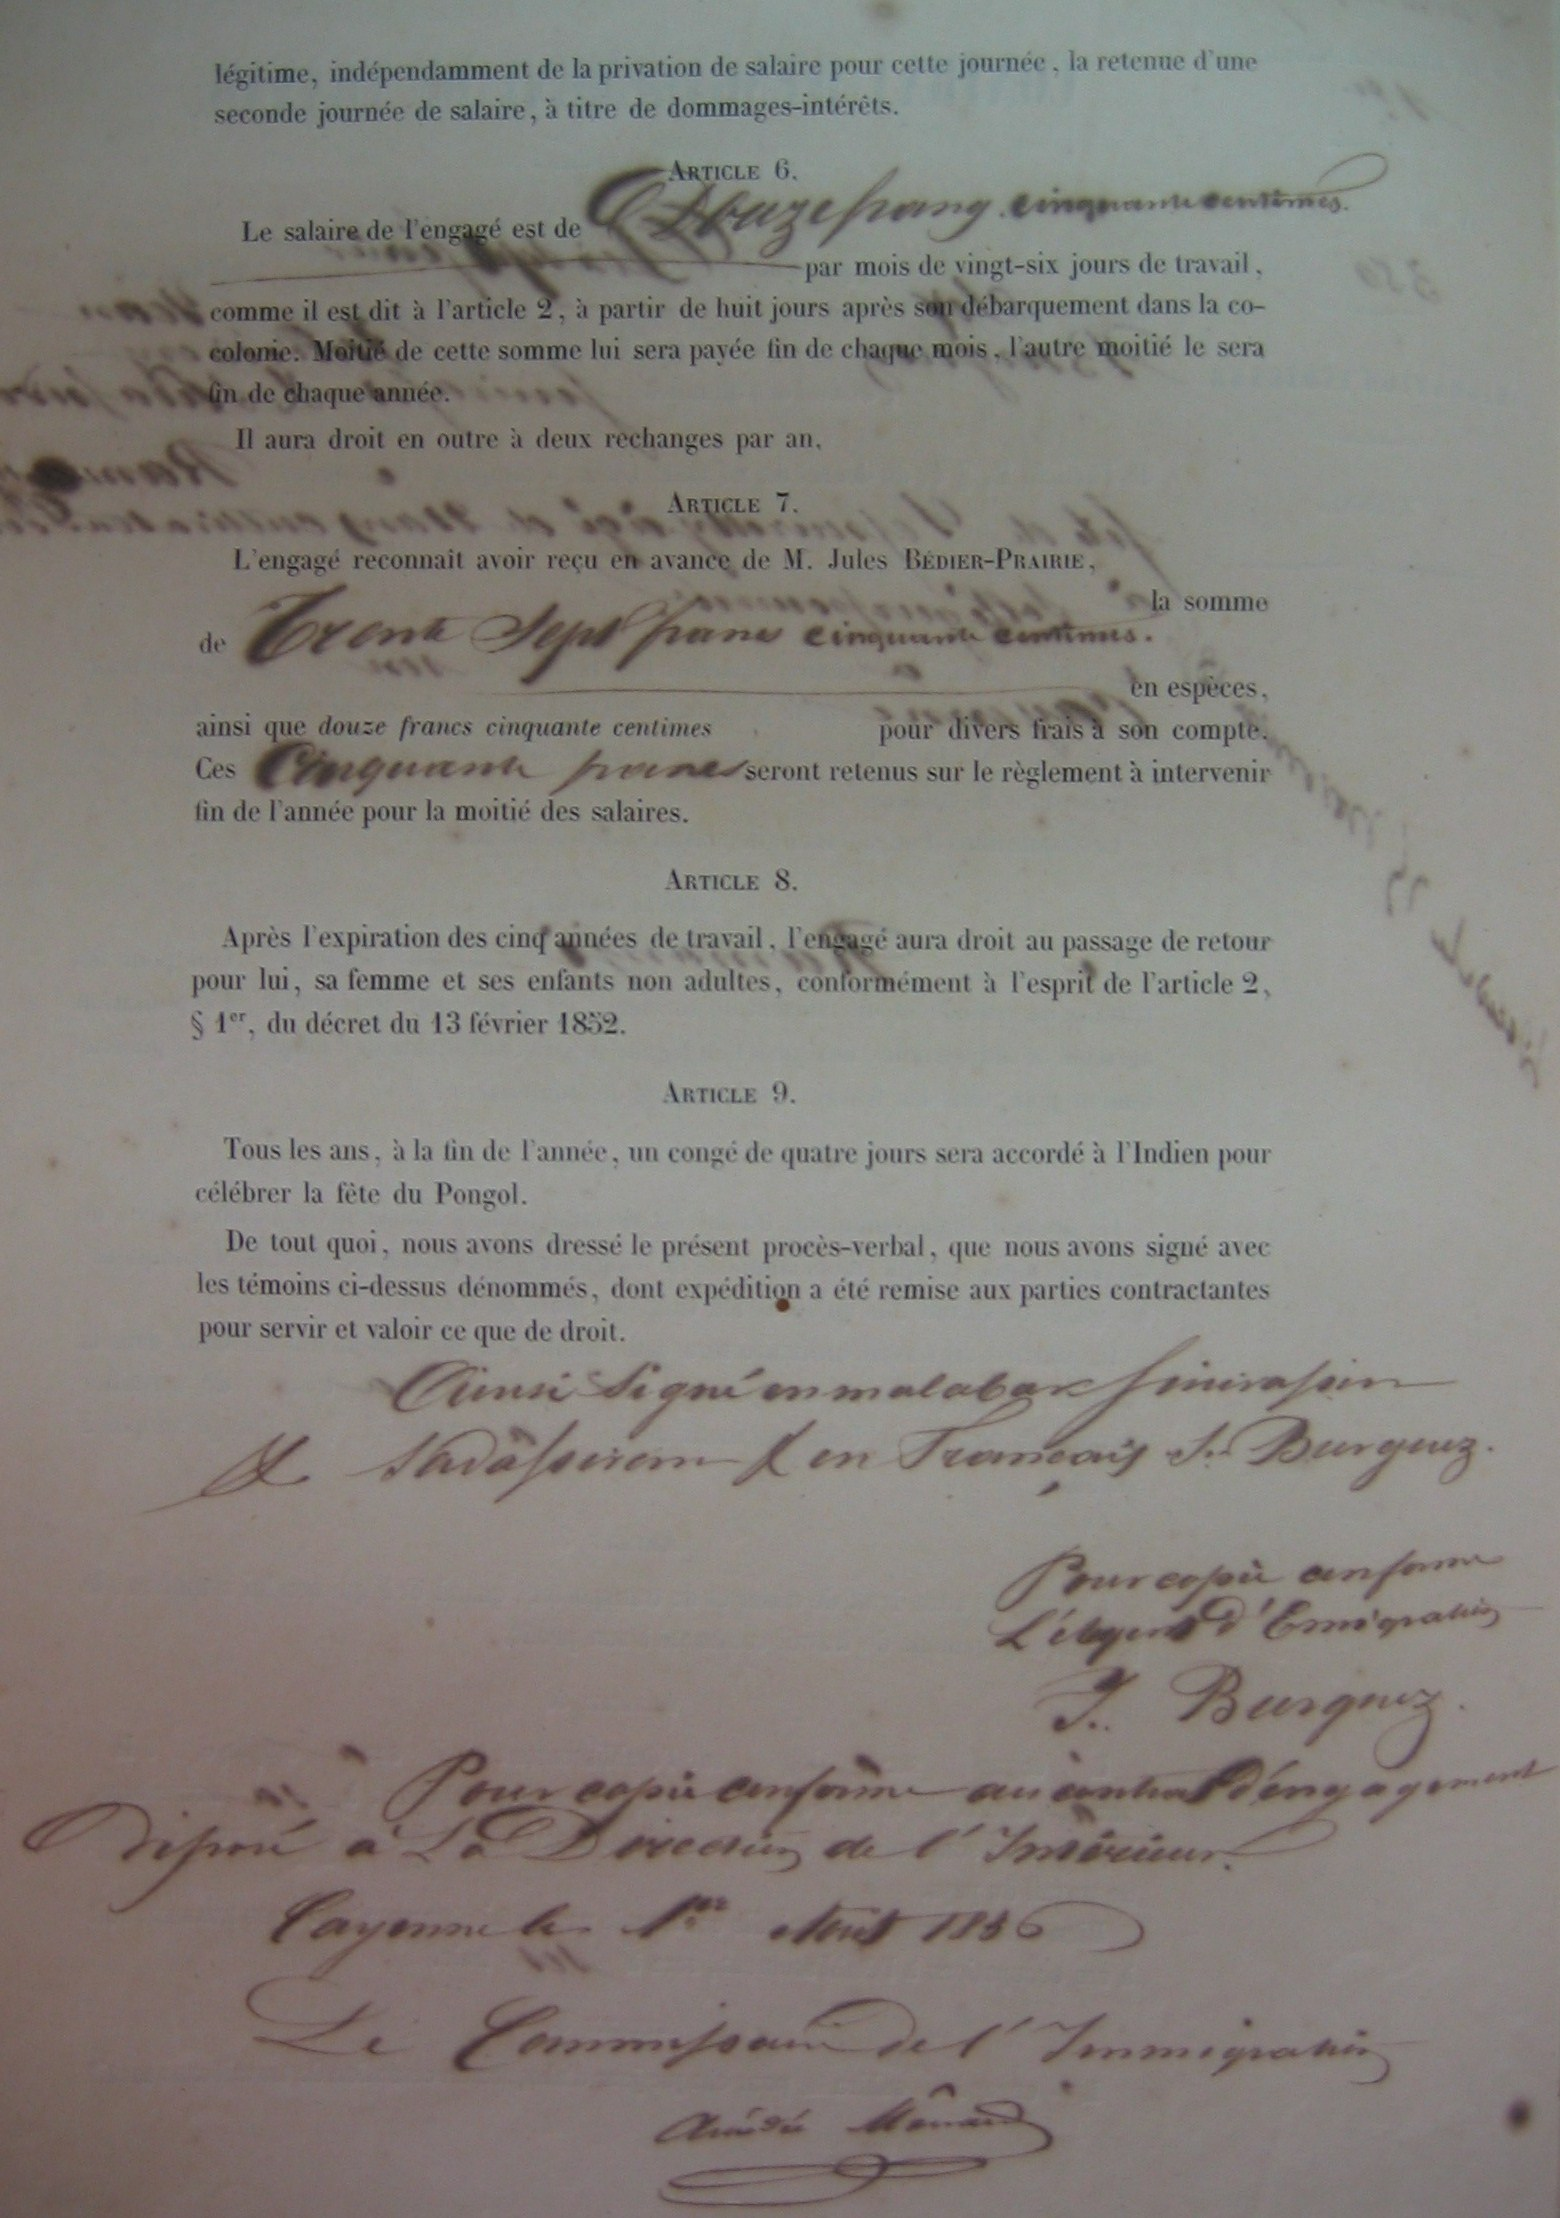 légitime, indépendamment de la privation de salaire pour cette journée, la retenue d'une
seconde journée de salaire, à titre de dommages-intérêts.
ARTICLE 6.
Le salaire de l'engagé est de Douze francs cinquante centimes.
par mois de vingt-six jours de travail,
comme il est dit à l'article 2, à partir de huit jours après son débarquement dans la co-
colonie. Moitié de cette somme lui sera payée fin de chaque mois, l'autre moitié le sera
fin de chaque année.
Il aura droit en outre à deux rechanges par an.
ARTICLE 7.
L'engagé reconnaît avoir reçu en avance de M. Jules BÉDIER-PRAIRIE,
la somme
de Trente Sept francs cinquante centimes.
en espèces,
ainsi que douze francs cinquante centimes pour divers frais à son compte.
Ces Cinquante francs seront retenus sur le règlement à intervenir
fin de l'année pour la moitié des salaires.
ARTICLE 8.
Après l'expiration des cinq années de travail, l'engagé aura droit au passage de retour
pour lui, sa femme et ses enfants non adultes, conformément à l'esprit de l'article 2,
§ 1er, du décret du 13 février 1852.
ARTICLE 9.
Tous les ans, à la fin de l'année, un congé de quatre jours sera accordé à l'Indien pour
célébrer la fête du Pongol.
De tout quoi, nous avons dressé le présent procès-verbal, que nous avons signé avec
les témoins ci-dessus dénommés, dont expédition a été remise aux parties contractantes
pour servir et valoir ce que de droit.
Ainsi Signé en malabar Sinivassin
& Sadassivem & en Français J. Burguez.
Pour copie conforme
L'Agent d'Emigration
J. Burguez.
Pour copie conforme au contrat d'engagement
Déposé à La Direction de l'Intérieur.
Cayenne le 1er Août 1856
Le Commissaire de l'Immigration